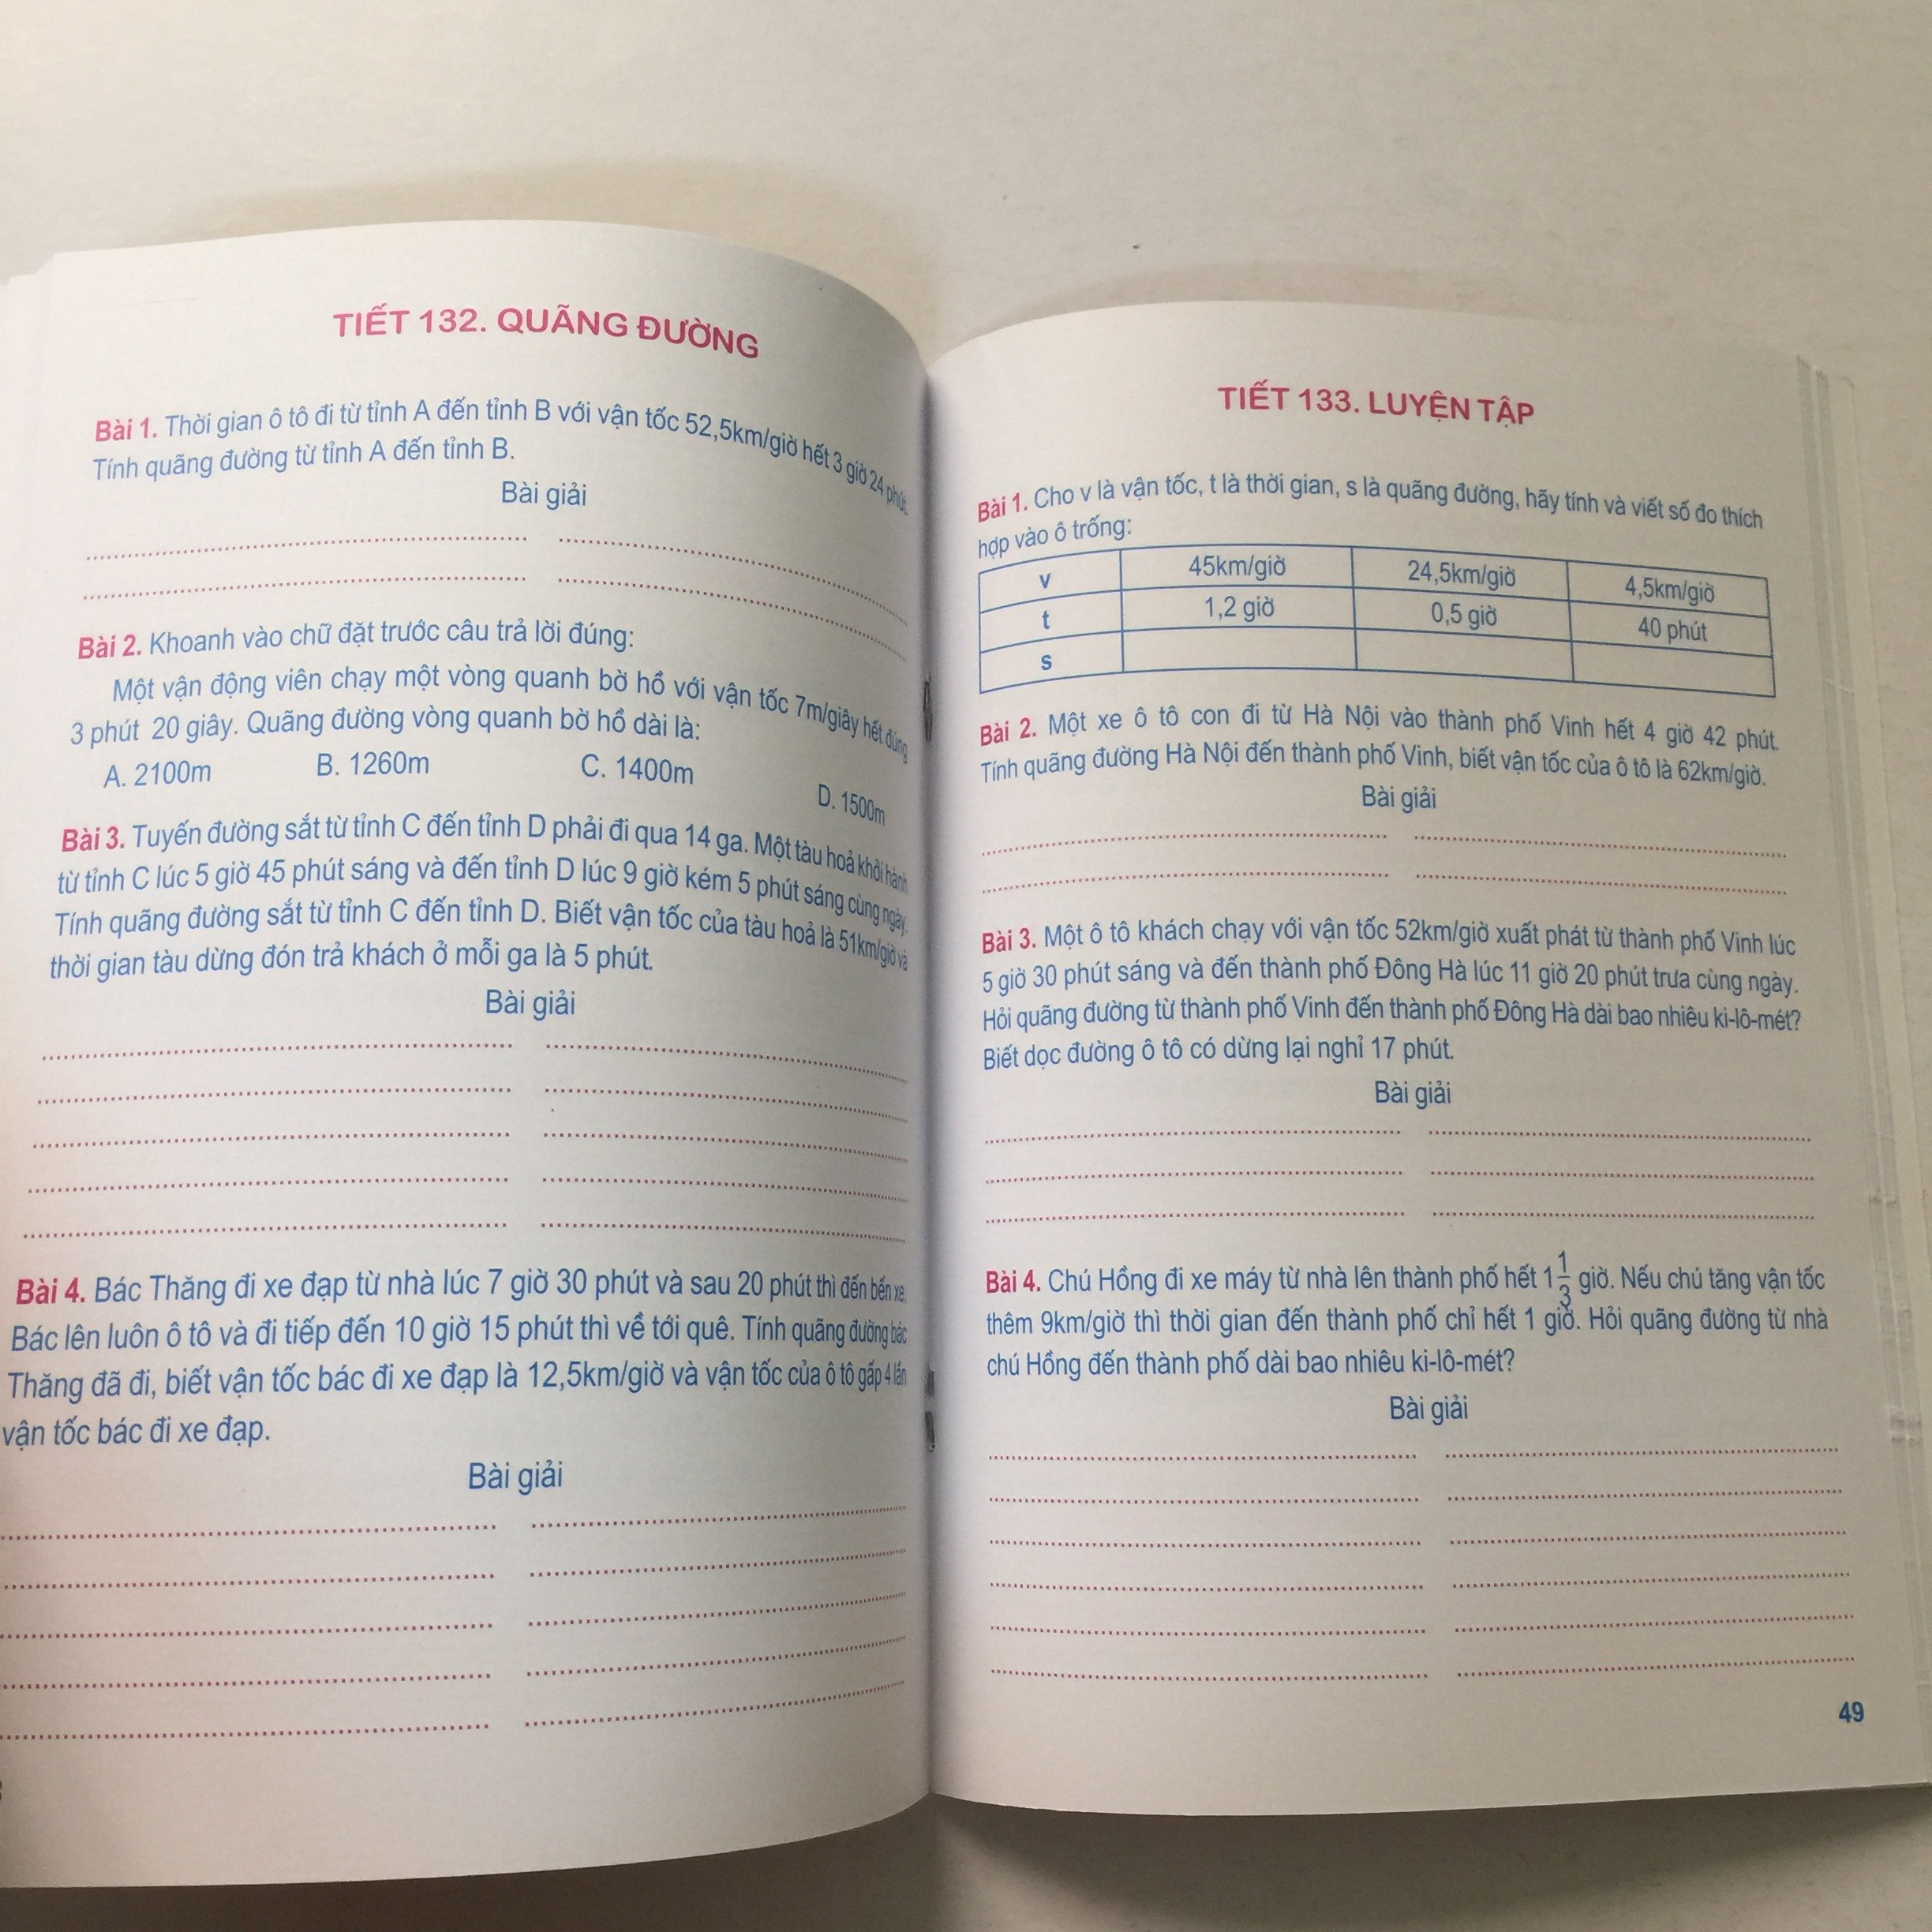 TIẾT 132. QUÃNG ĐƯỜNG
Bài 1. Thời gian ô tô đi từ tỉnh A đến tỉnh B với vận tốc 52,5km/giờ hết 3 giờ 24 phút.
Tính quãng đường từ tỉnh A đến tỉnh B.
Bài giải
Bài 2. Khoanh vào chữ đặt trước câu trả lời đúng:
Một vận động viên chạy một vòng quanh bờ hồ với vận tốc 7m/giây hết đúng
3 phút 20 giây. Quãng đường vòng quanh bờ hồ dài là:
A. 2100m B. 1260m C. 1400m D. 1500m
Bài 3. Tuyến đường sắt từ tỉnh C đến tỉnh D phải đi qua 14 ga. Một tàu hoả khởi hành
từ tỉnh C lúc 5 giờ 45 phút sáng và đến tỉnh D lúc 9 giờ kém 5 phút sáng cùng ngày.
Tính quãng đường sắt từ tỉnh C đến tỉnh D. Biết vận tốc của tàu hoả là 51km/giờ và
thời gian tàu dừng đón trả khách ở mỗi ga là 5 phút.
Bài giải
Bài 4. Bác Thăng đi xe đạp từ nhà lúc 7 giờ 30 phút và sau 20 phút thì đến bến xe.
Bác lên luôn ô tô và đi tiếp đến 10 giờ 15 phút thì về tới quê. Tính quãng đường bác
Thăng đã đi, biết vận tốc bác đi xe đạp là 12,5km/giờ và vận tốc của ô tô gấp 4 lần
vận tốc bác đi xe đạp.
Bài giải
TIẾT 133. LUYỆN TẬP
Bài 1. Cho v là vận tốc, t là thời gian, s là quãng đường, hãy tính và viết số đo thích
hợp vào ô trống:
v 45km/giờ 24,5km/giờ 4,5km/giờ
t 1,2 giờ 0,5 giờ 40 phút
s
Bài 2. Một xe ô tô con đi từ Hà Nội vào thành phố Vinh hết 4 giờ 42 phút.
Tính quãng đường Hà Nội đến thành phố Vinh, biết vận tốc của ô tô là 62km/giờ.
Bài giải
Bài 3. Một ô tô khách chạy với vận tốc 52km/giờ xuất phát từ thành phố Vinh lúc
5 giờ 30 phút sáng và đến thành phố Đông Hà lúc 11 giờ 20 phút trưa cùng ngày.
Hỏi quãng đường từ thành phố Vinh đến thành phố Đông Hà dài bao nhiêu ki-lô-mét?
Biết dọc đường ô tô có dừng lại nghỉ 17 phút.
Bài giải
Bài 4. Chú Hồng đi xe máy từ nhà lên thành phố hết 1 1/3 giờ. Nếu chú tăng vận tốc
thêm 9km/giờ thì thời gian đến thành phố chỉ hết 1 giờ. Hỏi quãng đường từ nhà
chú Hồng đến thành phố dài bao nhiêu ki-lô-mét?
Bài giải
49